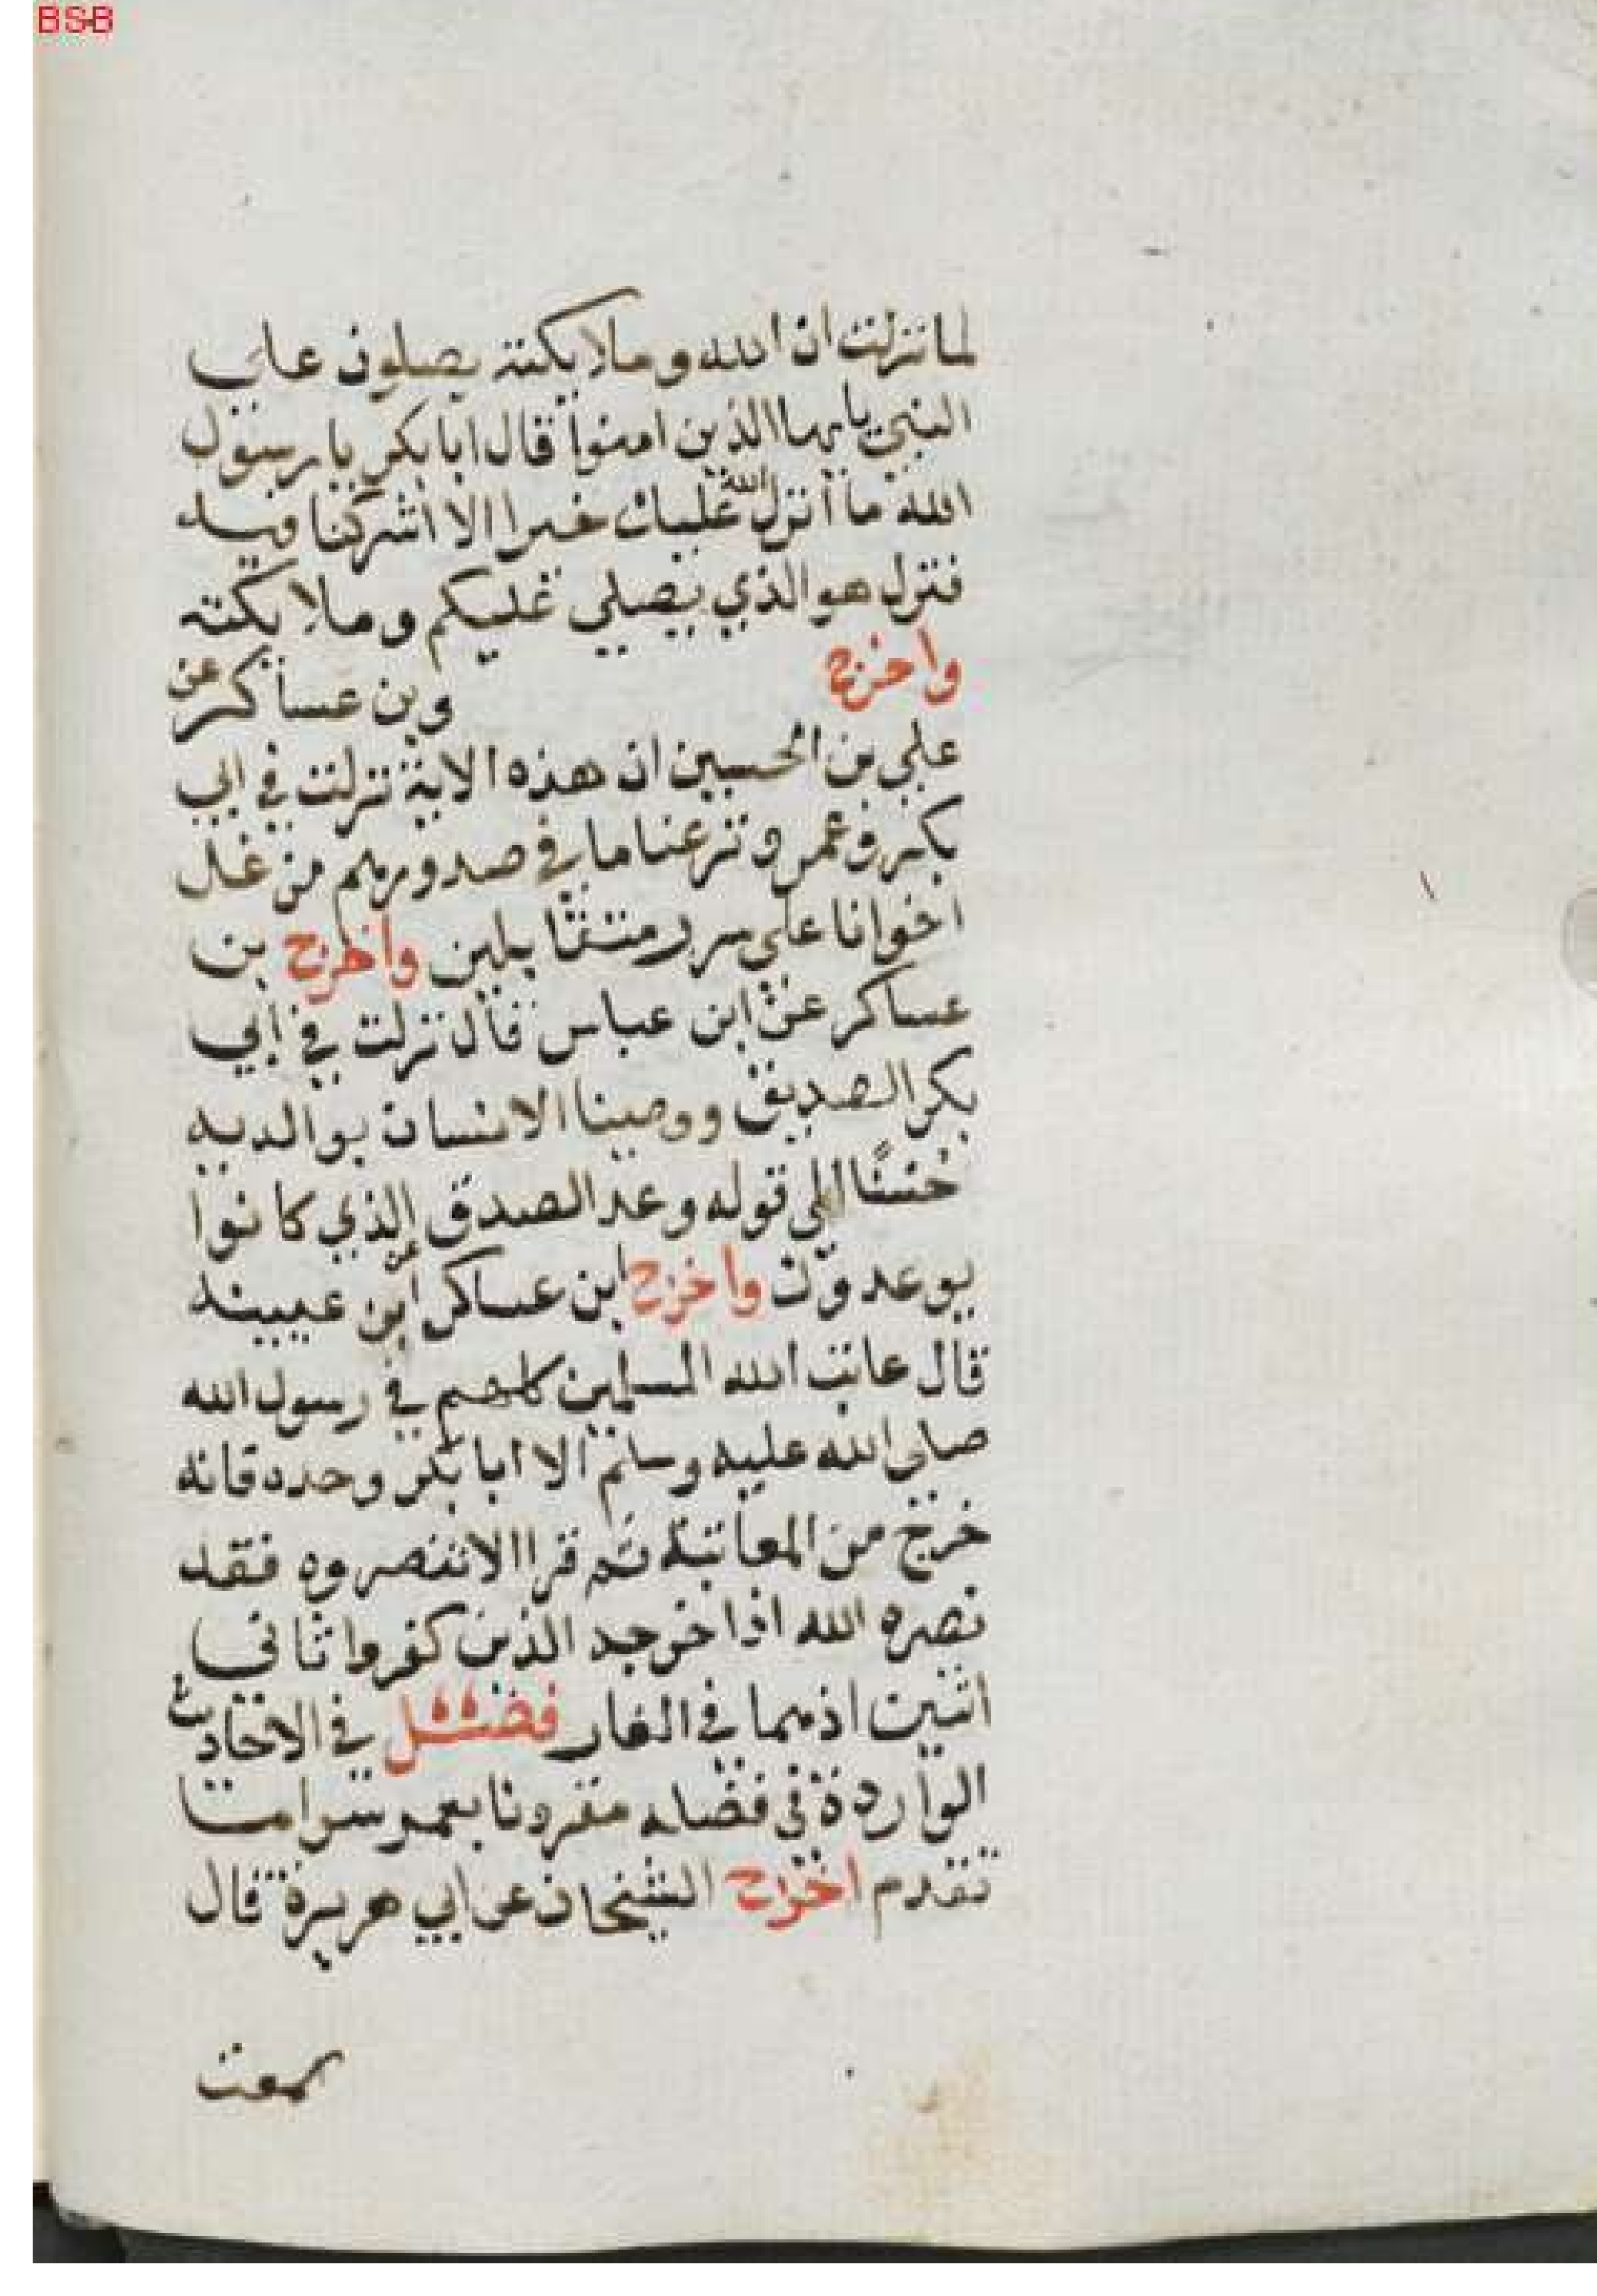 BSB
لما نزلت ان الله وملايكته يصلون على
النبي يايها الذين امنوا قال ابا بكر يا رسول
الله ما انزل الله عليك خيرا الا اشركنا فيه
فنزل هو الذي يصلي عليكم وملايكته
واخرج وبن عساكر عن
علي بن الحسين ان هذه الاية نزلت في ابي
بكر وعمر ونزعنا ما في صدورهم من غل
اخوانا على سرر متقابلين واخرج بن
عساكر عن ابن عباس قال نزلت في ابي
بكر الصديق ووصينا الانسان بوالديه
حسنًا الى قوله وعد الصدق الذي كانوا
يوعدون واخرج ابن عساكر عن ابن عيينه
قال عاتب الله المسلمين كلهم في رسول الله
صلى الله عليه وسلم الا ابا بكر وحده فانه
خرج من المعاتبة ثم قرا الا تنصروه فقد
نصره الله اذ اخرجه الذين كفروا ثاني
اثنين اذ هما في الغار فصل في الاحاديث
الواردة في فضله مقرونا بعمر سوا ما
تقدم اخرج الشيخان عن ابي هريرة قال
سمعت